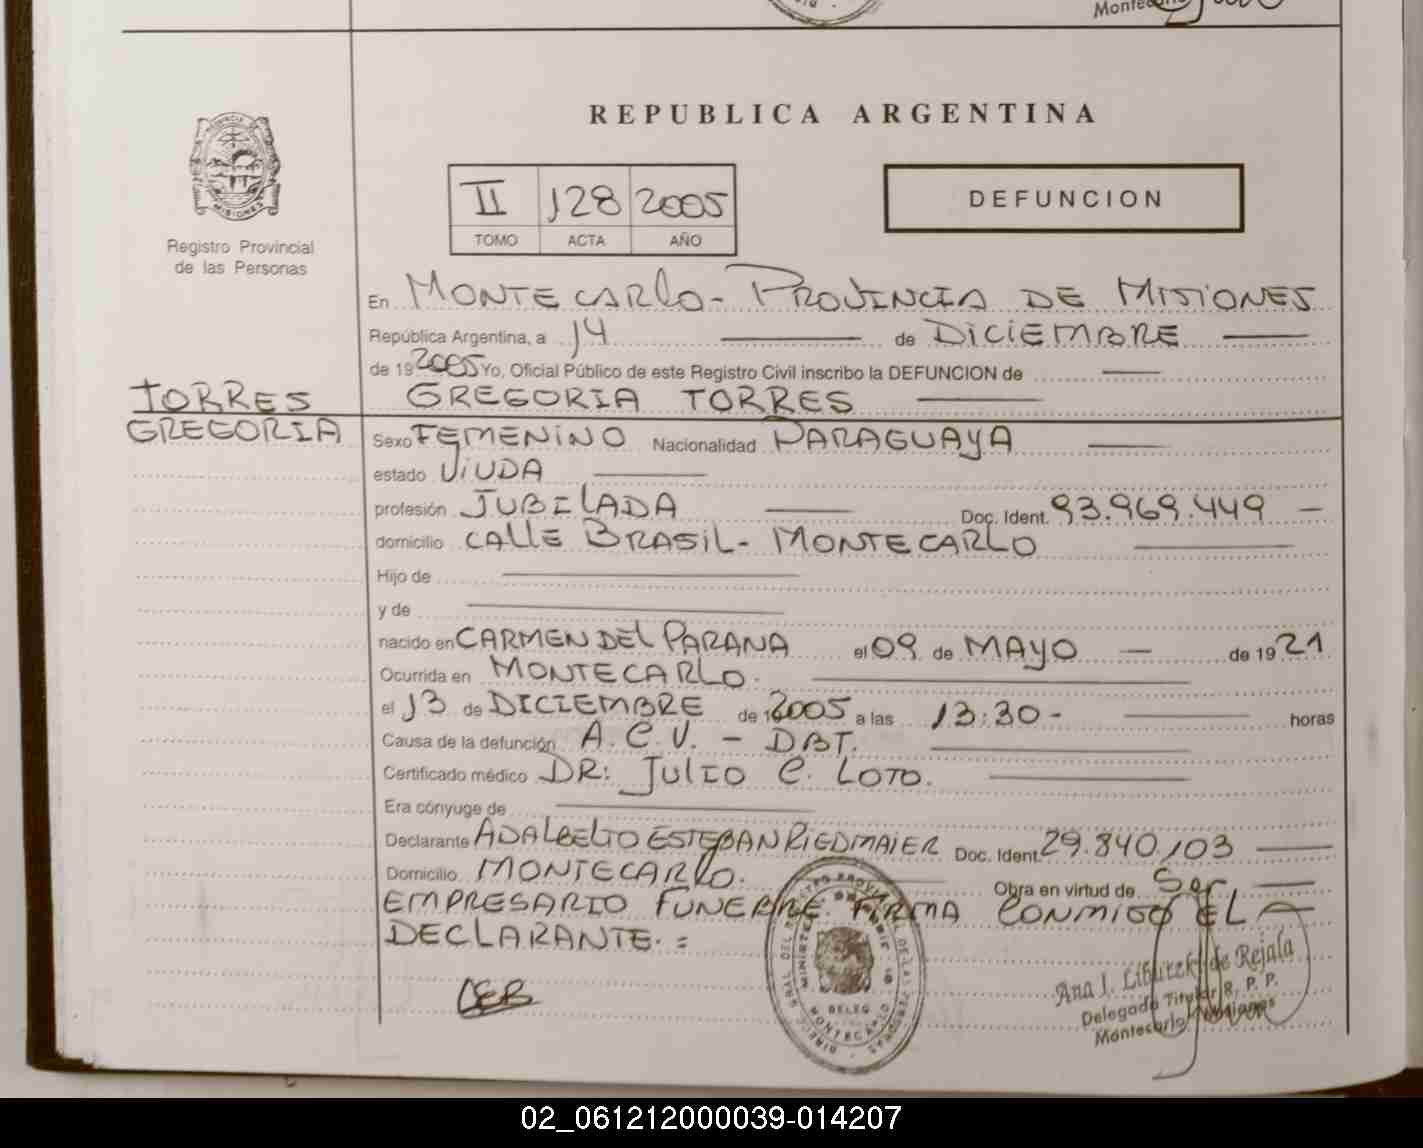 Montec
REPUBLICA ARGENTINA
PROVINCIA DE
MISIONES
Registro Provincial
de las Personas
II 128 2005
TOMO ACTA AÑO
DEFUNCION
En MONTECARLO - PROVINCIA DE MISIONES
República Argentina, a 14 de DICIEMBRE
de 19 2005 Yo, Oficial Público de este Registro Civil inscribo la DEFUNCION de
TORRES
GREGORIA
GREGORIA TORRES
Sexo FEMENINO Nacionalidad PARAGUAYA
estado VIUDA
profesión JUBILADA Doc. Ident. 93.969.449 -
domicilio CALLE BRASIL - MONTECARLO
Hijo de
y de
nacido en CARMEN DEL PARANA el 09 de MAYO - de 19 21
Ocurrida en MONTECARLO.
el 13 de DICIEMBRE de 2005 a las 13:30 - horas
Causa de la defunción A.C.V. - DBT.
Certificado médico DR: JULIO C. LOTO.
Era cónyuge de
Declarante ADALBELTO ESTEBAN RIEDMAIER Doc. Ident. 29.840.103
Domicilio MONTECARLO. Obra en virtud de Ser
EMPRESARIO FUNEBRE. FIRMA CONMIGO EL
DECLARANTE. =
DELEG
MONTECARLO
Ana I. de Rejala
Delegada Titular R. P. P.
Montecarlo Misiones
02_061212000039-014207